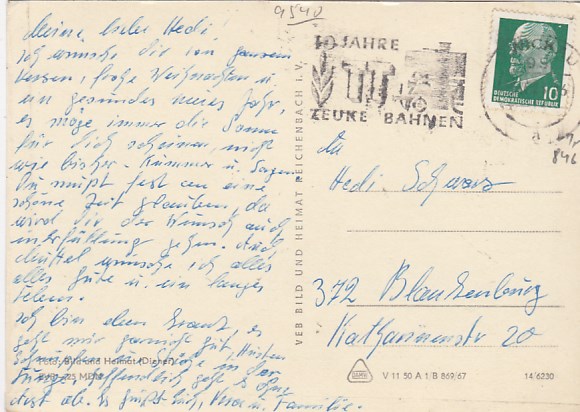 9540
Meine liebe Hedi,
ich wünsche dir von ganzem
Herzen, frohe Weihnachten u.
ein gesundes neues Jahr,
es möge immer die Sonne
für dich scheinen, nicht
wie bisher Kummer u. Sorgen
Du mußt fest an eine
schöne Zeit glauben, da
wird dir der Wunsch auch
in Erfüllung gehen. Auch
Mutter wünsche ich alles
alles Gute u. ein langes
Leben.
Ich bin krank, es
geht mir garnicht gut, Husten
hoffendlich geht es
es grüßt dich, Vera u. Familie.
Foto: Bild und Heimat
VEB BILD UND HEIMAT REICHENBACH I. V.
10 JAHRE
TT
ZEUKE BAHNEN
DEUTSCHE
DEMOKRATISCHE REPUBLIK
10
846
An
Hedi Schwarz
372 Blankenburg
Katharinenstr 20
V 11 50 A 1/B 869/67
14/6230